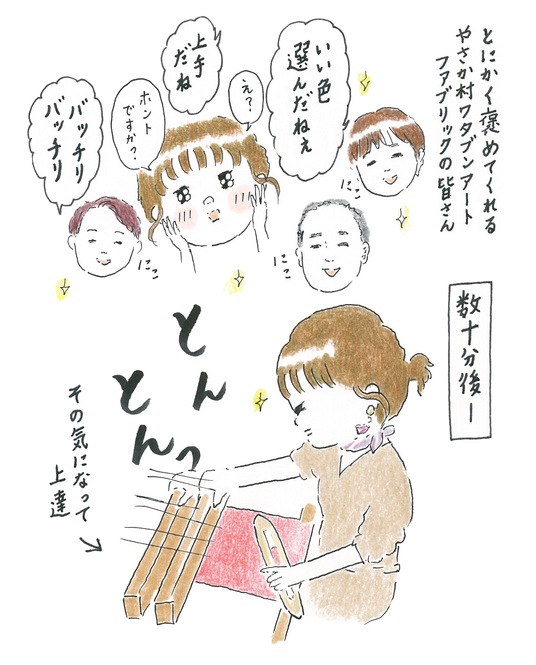 とにかく褒めてくれる
やさか村ワタブンアート
ファブリックの皆さん
いい色
選んだねぇ
え？
上手
だね
ホント
ですか？
バッチリ
バッチリ
にこ
にこ
にこ
数十分後ー
とん
とんっ
その気になって
上達